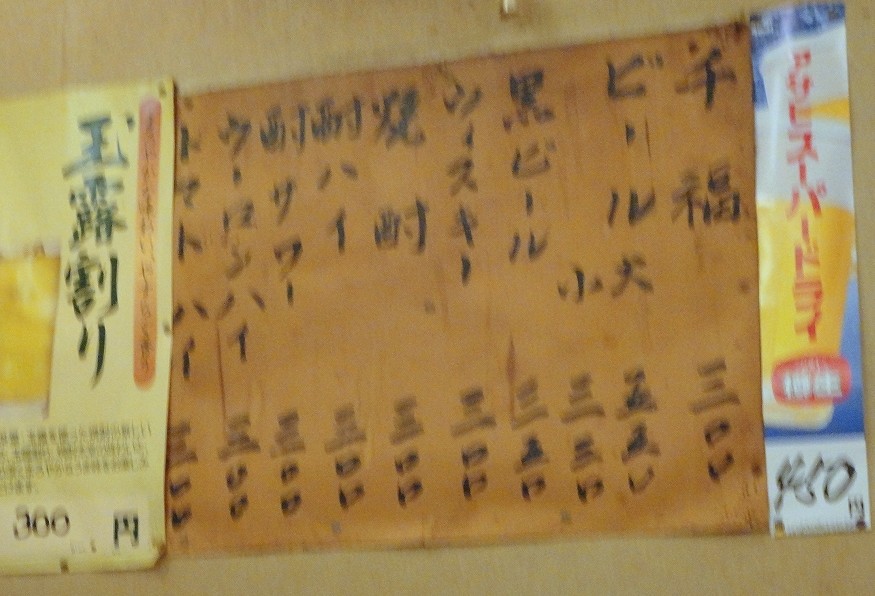 アサヒスーパードライ
450円
千福 三〇〇
ビール 大 五五〇
小 三三〇
黒ビール 三五〇
ウィスキー 三〇〇
焼酎 三〇〇
酎ハイ 三〇〇
酎サワー 三〇〇
ウーロンハイ 三〇〇
トマトハイ 三〇〇
玉露割り
300円